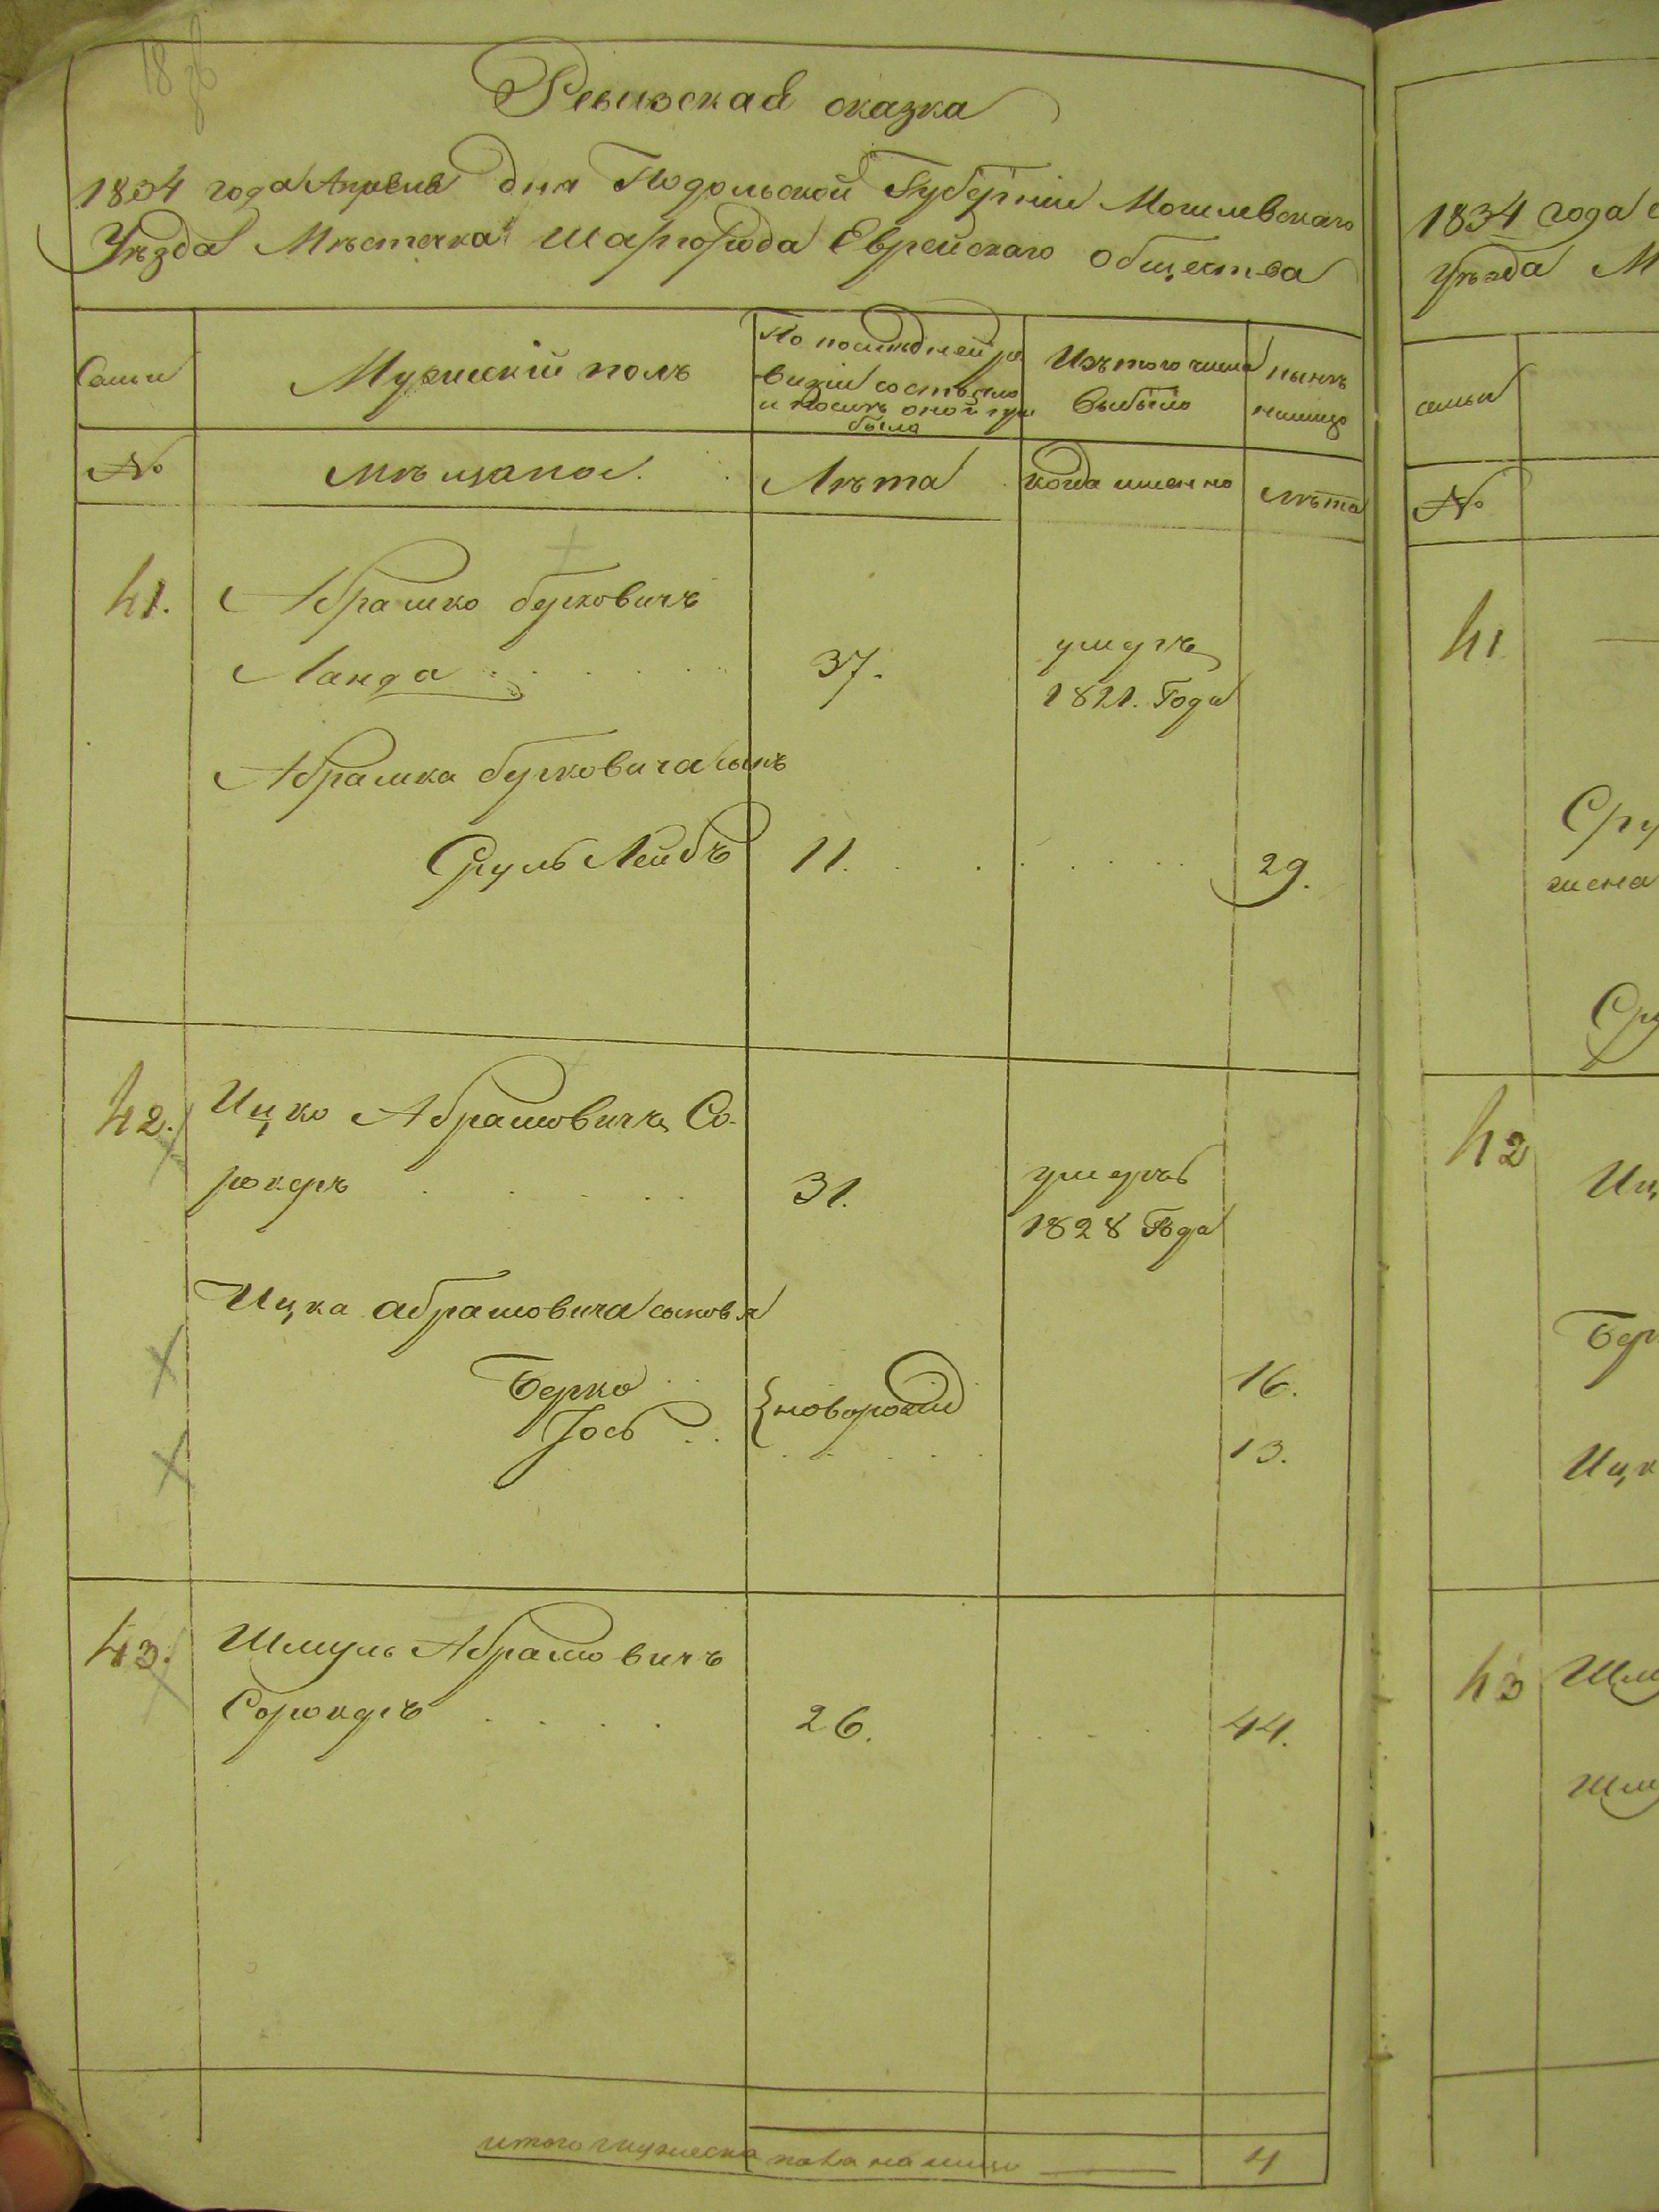 18 об
Ревизская сказка
1834 года Апреля дня Подольской Губернии Могилевскаго
Уѣзда Мѣстечка Шаргорода Еврейскаго общества
Семьи
Мужескій полъ
По послѣдней ре
визіи состояло
и послѣ оной при
было
Изъ того числа
выбыло
нынѣ
налицо
№
мѣщане.
Лѣта
когда именно
лѣта
41.
Абрашко Берковичъ
Ланда
37.
умеръ
1821. Года
Абрашка Берковича сынъ
Сруль Лейбъ
11.
29.
42.
Ицко Абрамовичъ Со-
рокеръ
31.
умеръ
1828 Года
Ицка абрамовича сыновья
Берко
новорожд
16.
Іось
13.
43.
Шмуль Абрамовичъ
Сорокеръ
26.
44.
итого мужеска пола налицо
4
1834 года
Уѣзда М
семьи
№
41
Сру
жена
Сру
42
Иц
Бер
Ицк
43
Шму
Шму